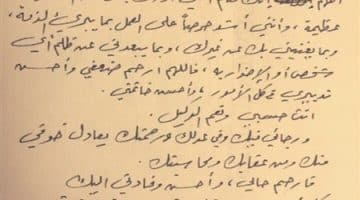 عظيمة، وأنني أشد حرصاً على العمل بما يبرئ الذمة،
وبما يقيني بك عن غيرك، وبما يبعدني عن ظلم أي
شخص أو الإضرار به، فاللهم ارحم ضعفي وأحسن
تدبيري في كل الأمور، وأحسن خاتمتي.
أنت حسبي ونعم الوكيل.
ورجائي فيك وفي عدلك ورحمتك يعادل خوفي
منك ومن عقابك ومحاسبتك.
فارحم حالي، وأحسن وفادتي إليك